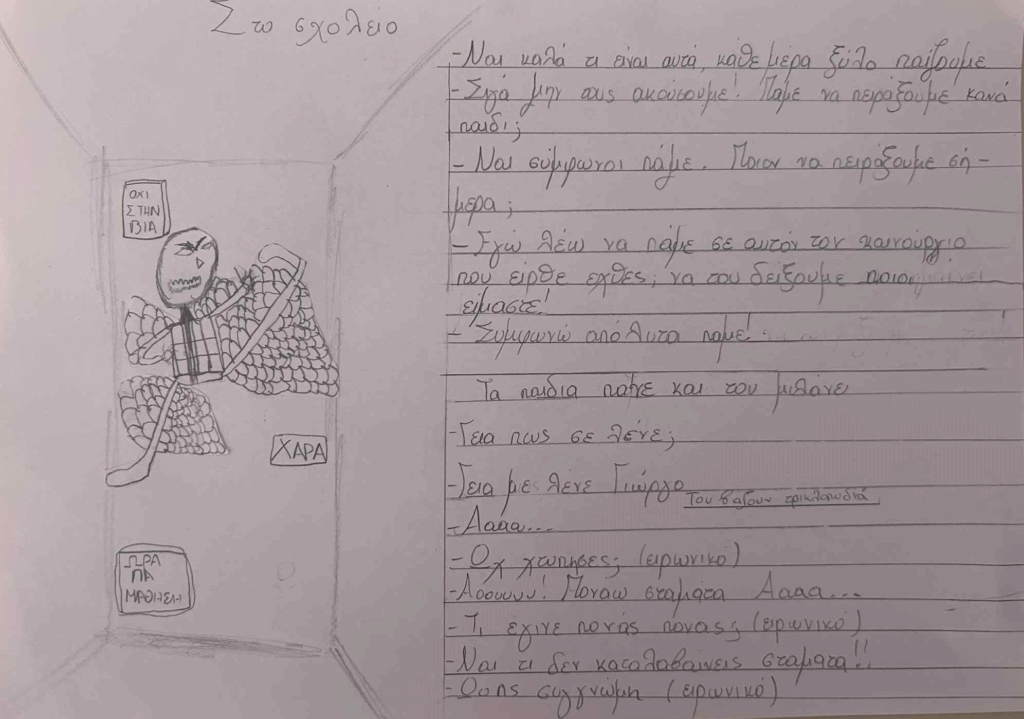 Στο σχολείο
ΟΧΙ
ΣΤΗΝ
ΒΙΑ
ΧΑΡΑ
ΩΡΑ
ΓΙΑ
ΜΑΘΗΣΗ
-Ναι καλά τι είναι αυτά, κάθε μέρα ξύλο παίζουμε
-Σιγά μην τους ακούσουμε! Πάμε να πειράξουμε κανά
παιδί;
-Ναι σύμφωνοι πάμε. Ποιον να πειράξουμε σή-
μερα;
-Εγώ λέω να πάμε σε αυτόν τον καινούργιο
που είρθε εχθές; να του δείξουμε ποιοι
είμαστε!
-Συμφωνώ απόλυτα παμε!
Τα παιδια πάνε και του μιλάνε
-Γεια πως σε λένε;
-Γεια με λένε Γιώργο
Του βάζουν τρικλοποδιά
-Αααα...
-Οχ χτυπησες; (ειρωνικό)
-Αοουυυ! Ποναω σταμάτα Αααα...
-Τι εγινε πονάς πόνας; (ειρωνικό)
-Ναι τι δεν καταλαβαίνεις σταματα!!
-Ουπς συγγνώμη (ειρωνικό)